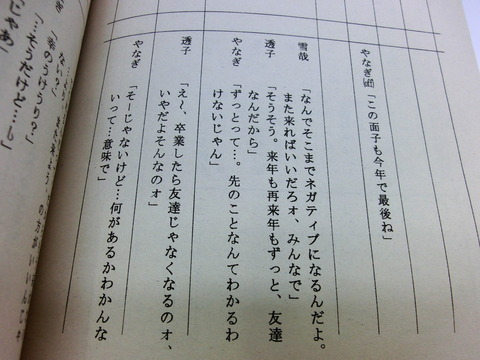 やなぎ 「この面子も今年で最後ね」
雪哉 「なんでそこまでネガティブになるんだよ。
また来ればいいだろォ、みんなで」
透子 「そうそう。来年も再来年もずっと、友達
なんだから」
やなぎ 「ずっとって…。先のことなんてわかるわ
けないじゃん」
透子 「え〜、卒業したら友達じゃなくなるのォ、
いやだよそんなのォ」
やなぎ 「そーじゃないけど…何があるかわかんな
いって…意味で」
の方がいいんじゃ
ない？」
のうけうり？」
「…そうだけど…」
じゃあ」